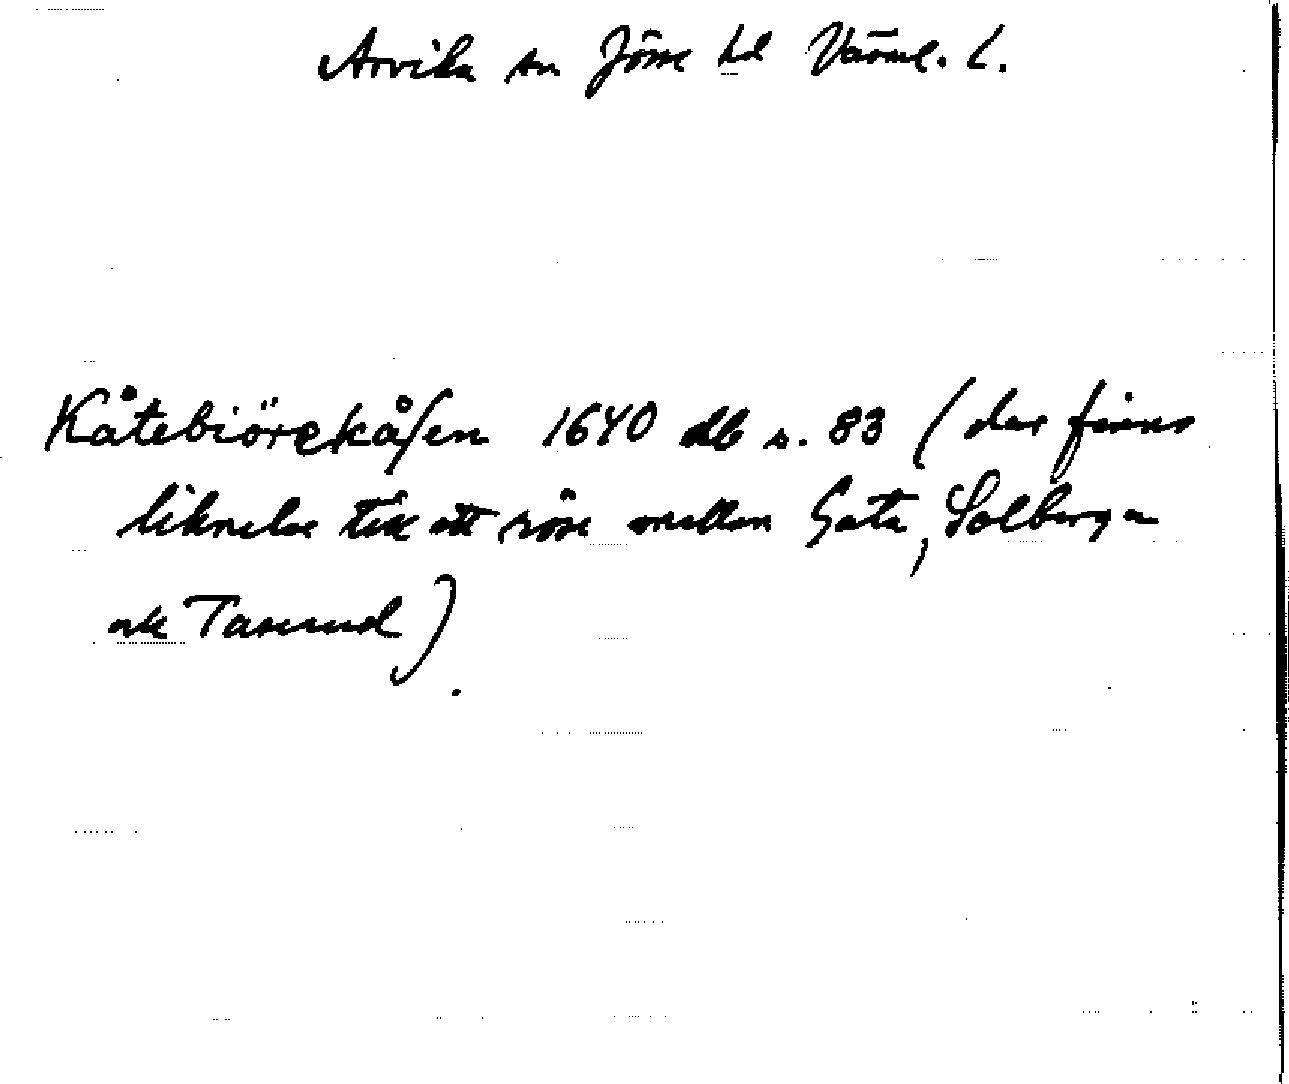 Arvika sn Jösse hd Värml. l.
Kåtebiörekåsen 1640 db s. 83 (der finns
liknelse till ett röse mellan Gata, Solberga
och Taserud).